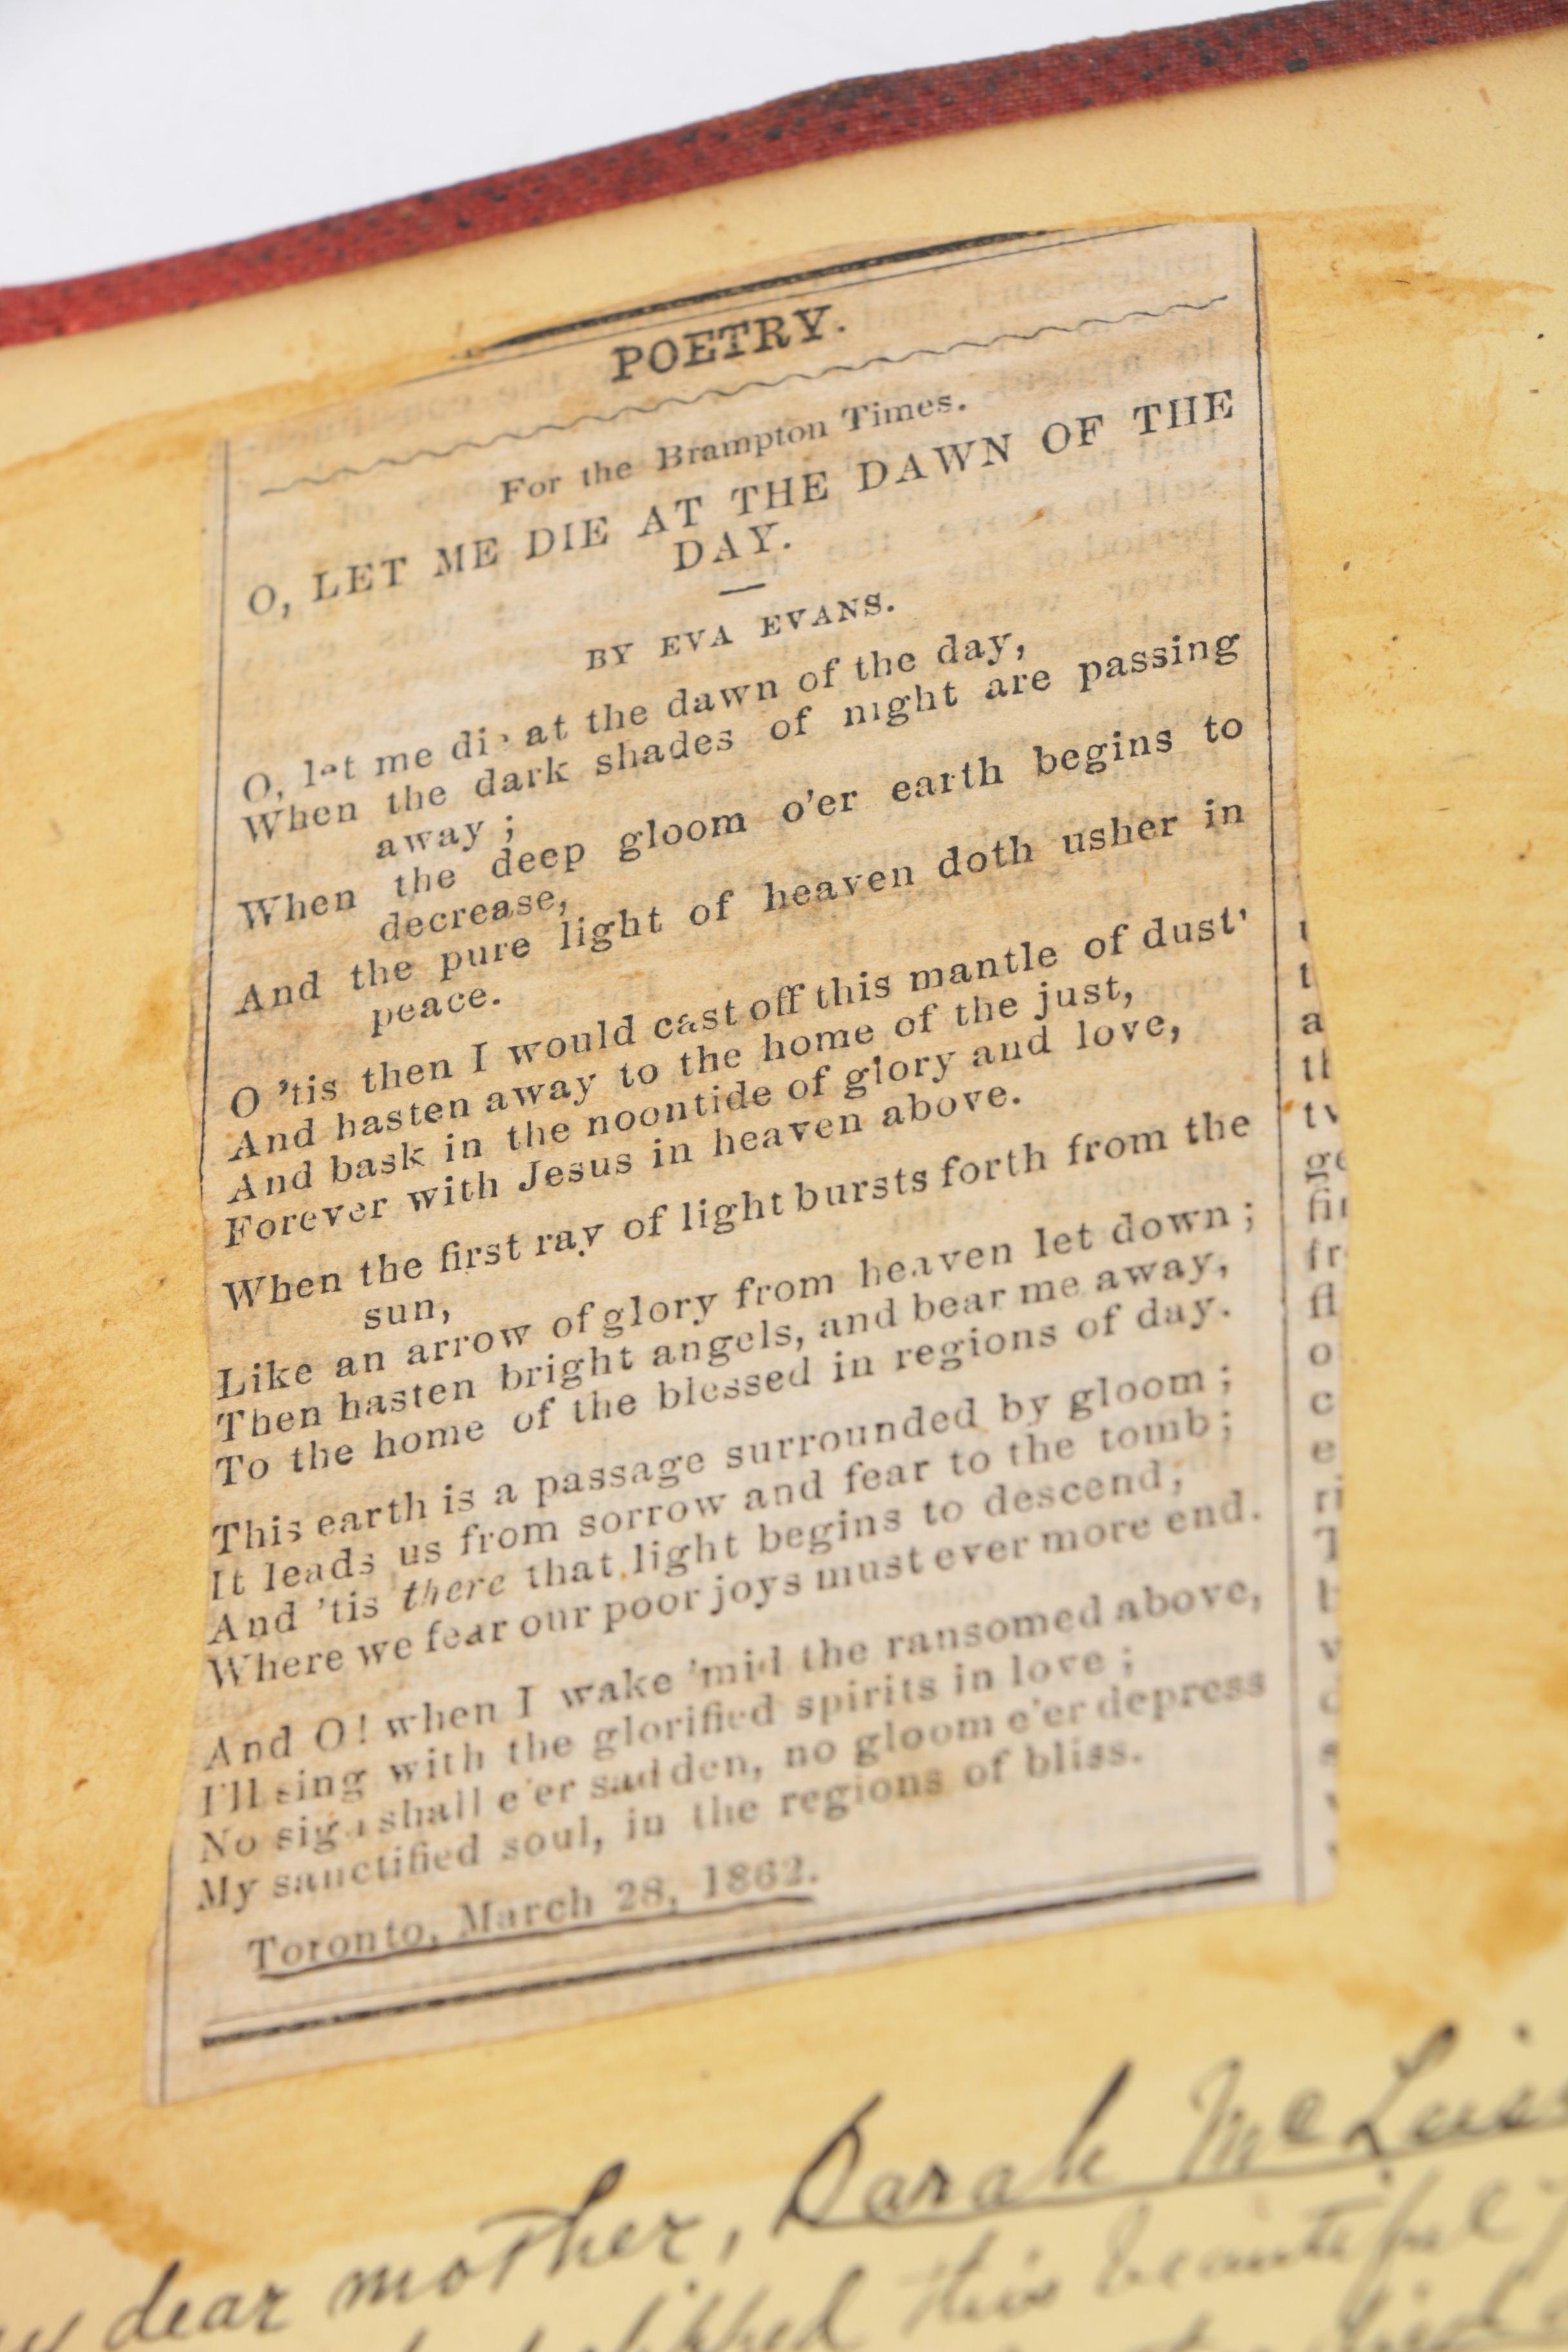 POETRY.
For the Brampton Times.
O, LET ME DIE AT THE DAWN OF THE
DAY.
BY EVA EVANS.
O, let me die at the dawn of the day,
When the dark shades of night are passing
away ;
When the deep gloom o'er earth begins to
decrease,
And the pure light of heaven doth usher in
peace.
O 'tis then I would cast off this mantle of dust'
And hasten away to the home of the just,
And bask in the noontide of glory and love,
Forever with Jesus in heaven above.
When the first ray of light bursts forth from the
sun,
Like an arrow of glory from heaven let down ;
Then hasten bright angels, and bear me away,
To the home of the blessed in regions of day.
This earth is a passage surrounded by gloom ;
It leads us from sorrow and fear to the tomb ;
And 'tis there that light begins to descend ;
Where we fear our poor joys must ever more end.
And O! when I wake 'mid the ransomed above,
I'll sing with the glorified spirits in love ;
No sigh shall e'er sadden, no gloom e'er depress
My sanctified soul, in the regions of bliss.
Toronto, March 28, 1862.
t
a
th
tw
ge
fir
fr
fl
o
c
e
ri
T
dear mother, Sarah
this beautiful